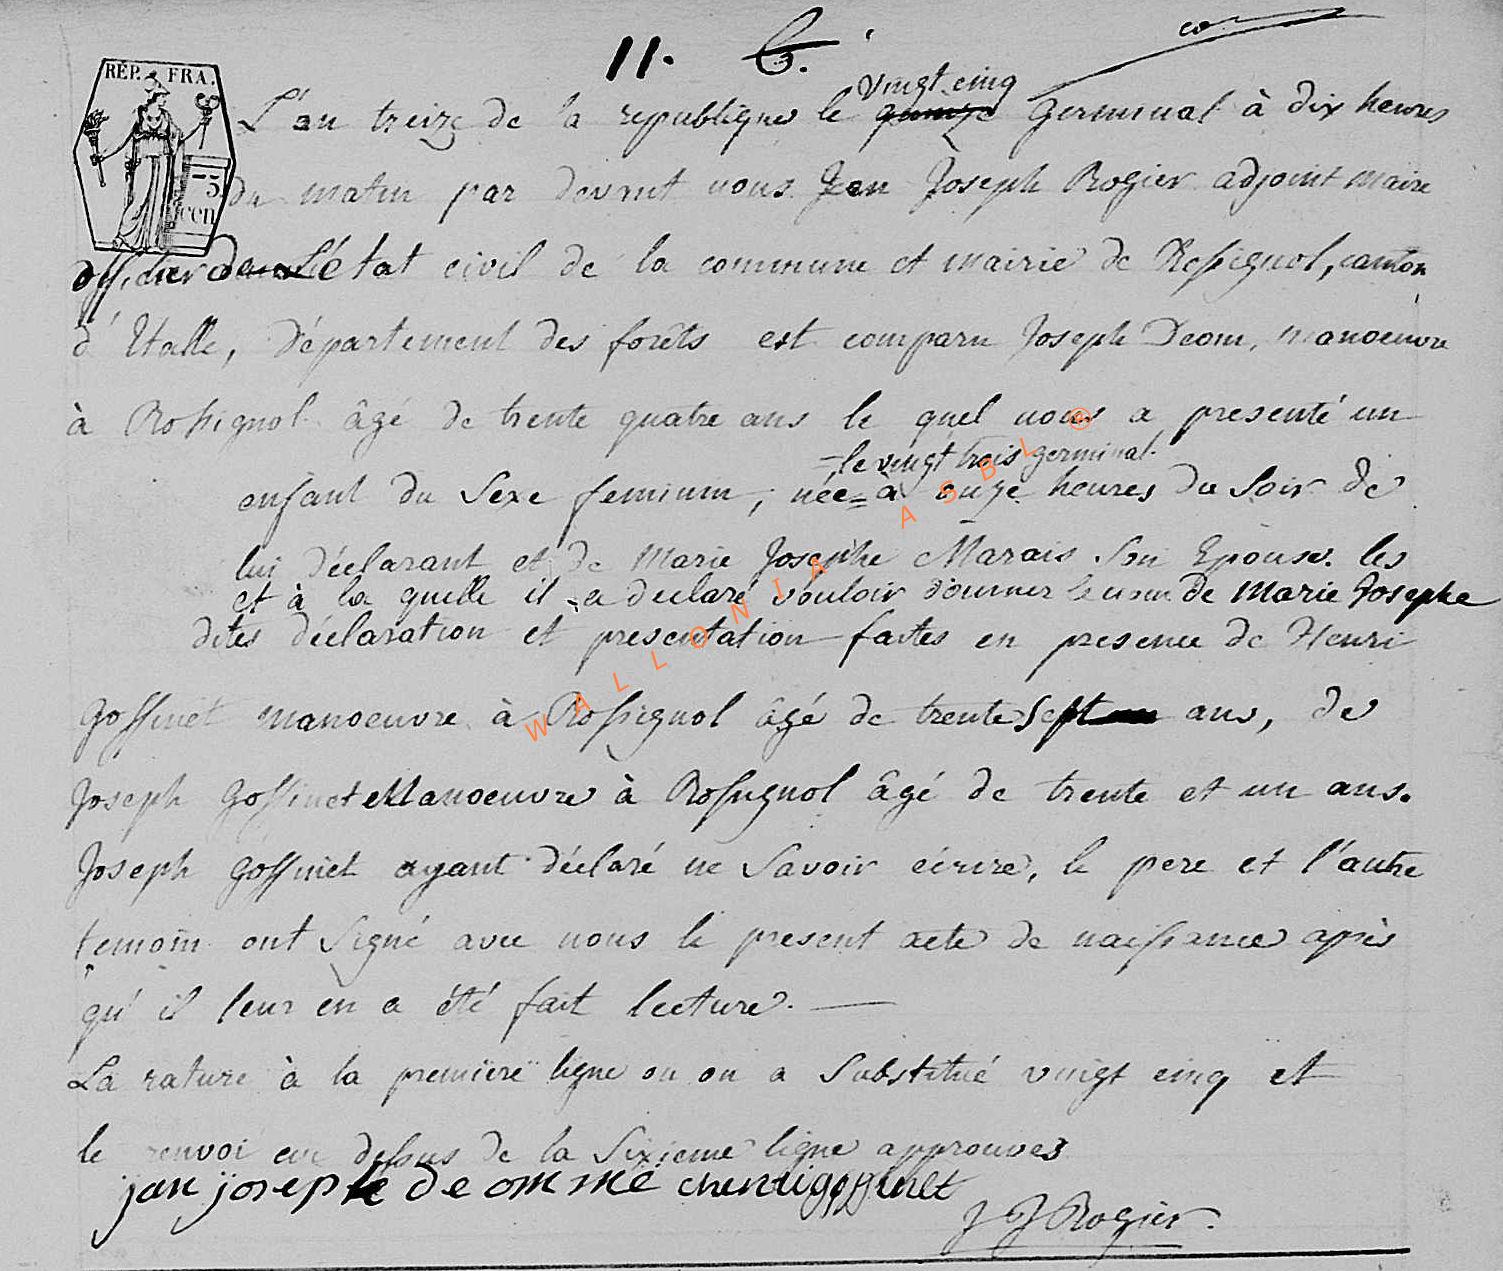 11. 6.
RÉP. FRA.
75 cen
vingt cinq
L'an treize de la republique le quinze Germinal à dix heures
du matin par devant nous Jean Joseph Rogier adjoint maire
officier de l'état civil de la commune et mairie de Rossignol, canton
d'Etalle, Département des forêts est comparu Joseph Deom, manoeuvre
à Rossignol âgé de trente quatre ans le quel nous a presenté un
=le vingt trois germinal.
enfant du Sexe feminin, née= à onze heures du Soir de
lui déclarant et de Marie Josephe Marais Son Epouse. les
et à la quelle il a declaré vouloir donner le nom de Marie Josephe
dites déclaration et presentation faites en presence de Henri
Goffinet manoeuvre à Rossignol âgé de trente sept ans, de
Joseph Goffinet Manoeuvre à Rossignol âgé de trente et un ans.
Joseph Goffinet ayant déclaré ne Savoir écrire, le pere et l'autre
temoin ont Signé avec nous le present acte de naissance après
qu'il leur en a été fait lecture.
La rature à la premiere ligne ou on a Substitué vingt cinq et
le renvoi au dessus de la Sixieme ligne approuvés
jan joseph deomme henrigoffinet
J J Rogier.
WALLONIA ASBL ©